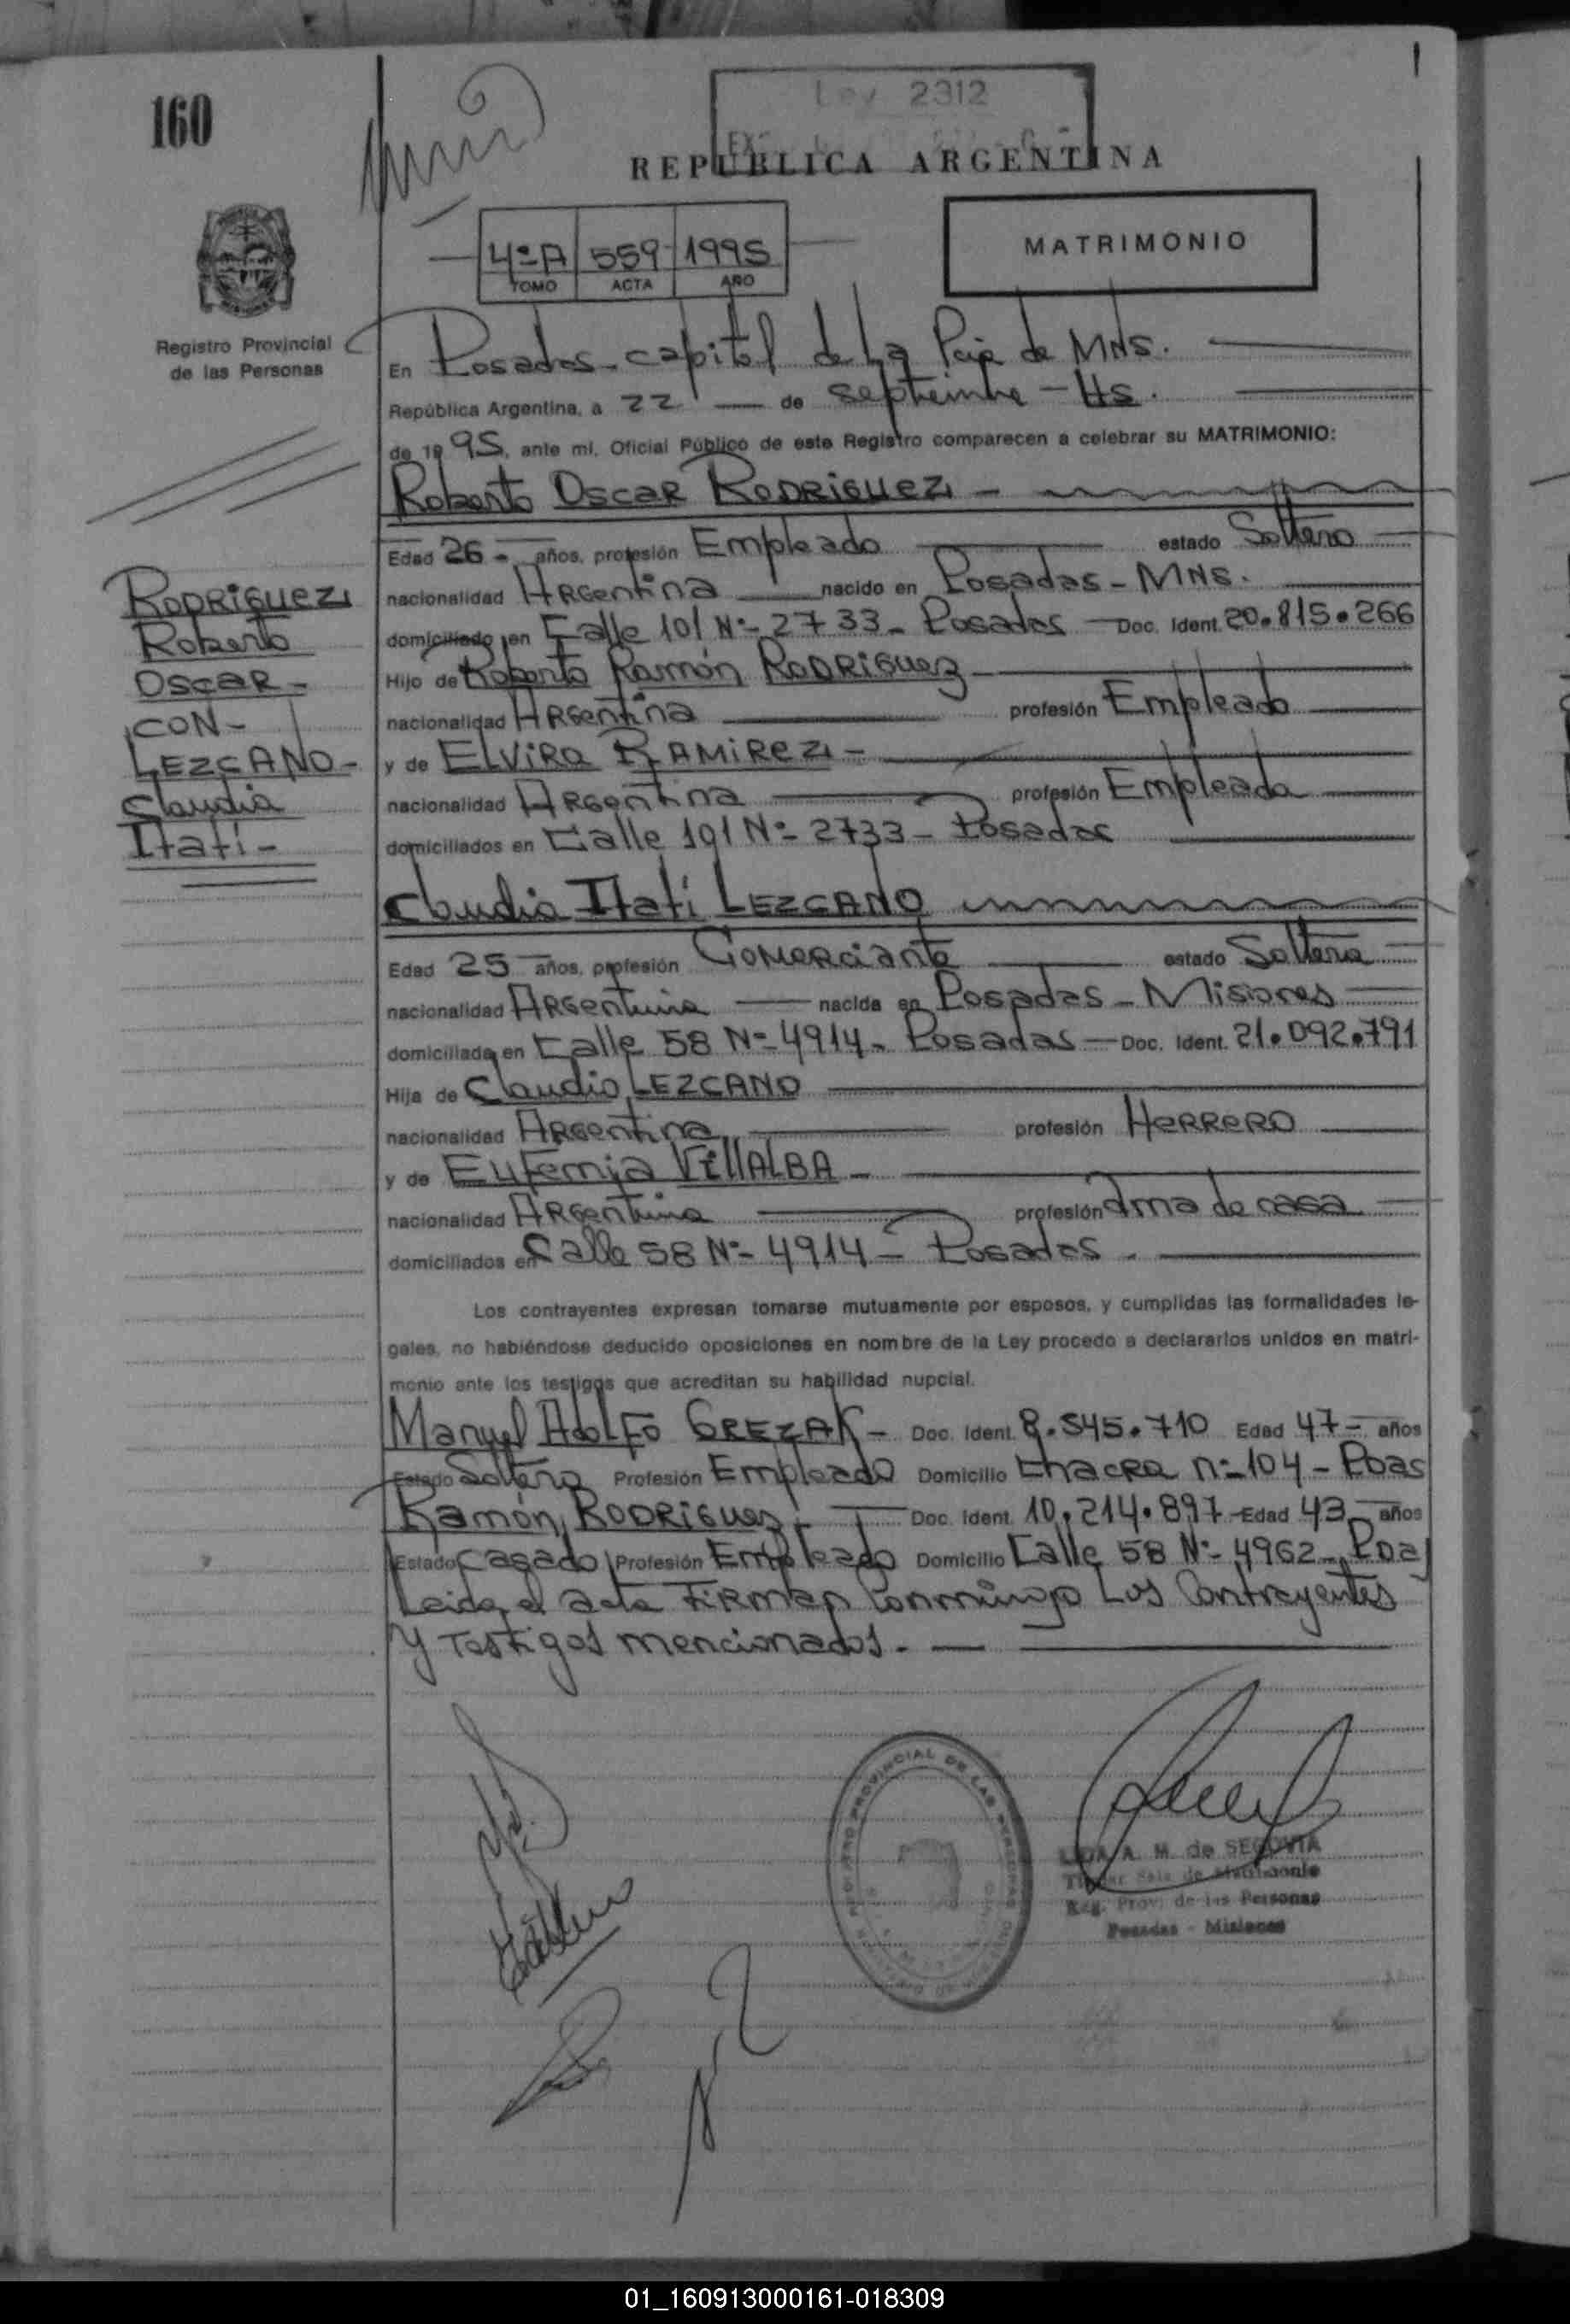 160
Ley 2312
REPUBLICA ARGENTINA
4º A 559 1995
TOMO ACTA AÑO
MATRIMONIO
Registro Provincial
de las Personas
En Posadas - capital de La Pcia de MNS.
República Argentina, a 22 — de septiembre - Hs.
de 1995, ante mí, Oficial Público de este Registro comparecen a celebrar su MATRIMONIO:
Roberto Oscar RODRIGUEZ -
Edad 26 - años, profesión Empleado estado Soltero
nacionalidad ARgentina nacido en Posadas - MNS.
domiciliado en Calle 101 Nº- 2733 - Posadas - Doc. Ident. 20.815.266
Hijo de Roberto Ramón RODRIGUEZ
nacionalidad ARgentina profesión Empleado
y de ELViRa RAMIREZ -
nacionalidad ARgentina profesión Empleada
domiciliados en Calle 101 Nº- 2733 - Posadas
RODRIGUEZ
Roberto
OSCAR -
CON -
LEZCANO -
Claudia
Itatí -
Claudia Itatí LEZCANO
Edad 25 años, profesión Comerciante estado Soltera
nacionalidad ARgentina nacida en Posadas - Misiones
domiciliada en Calle 58 Nº- 4914 - Posadas - Doc. Ident. 21.092.791
Hija de Claudio LEZCANO
nacionalidad ARgentina profesión HERRERO
y de Eufemia VillALBA -
nacionalidad ARgentina profesión Ama de casa
domiciliados en Calle 58 Nº- 4914 - Posadas.
Los contrayentes expresan tomarse mutuamente por esposos, y cumplidas las formalidades le-
gales, no habiéndose deducido oposiciones en nombre de la Ley procedo a declararlos unidos en matri-
monio ante los testigos que acreditan su habilidad nupcial.
Manuel Adolfo GREZAK - Doc. Ident. 8.545.710 Edad 47 - años
Estado Soltero Profesión Empleado Domicilio Chacra nº- 104 - Pdas
Ramón RODRIGUEZ - Doc. Ident. 10.214.897 - Edad 43 - años
Estado Casado Profesión Empleado Domicilio Calle 58 Nº- 4962 - Pdas
Leida el acta FIRMAN Conmigo Los Contrayentes
Y Testigos mencionados. -
REGISTRO PROVINCIAL DE LAS PERSONAS
LIDA A. M. de SEGOVIA
Titular Sala de Matrimonio
Reg. Prov. de las Personas
Posadas - Misiones
01_160913000161-018309